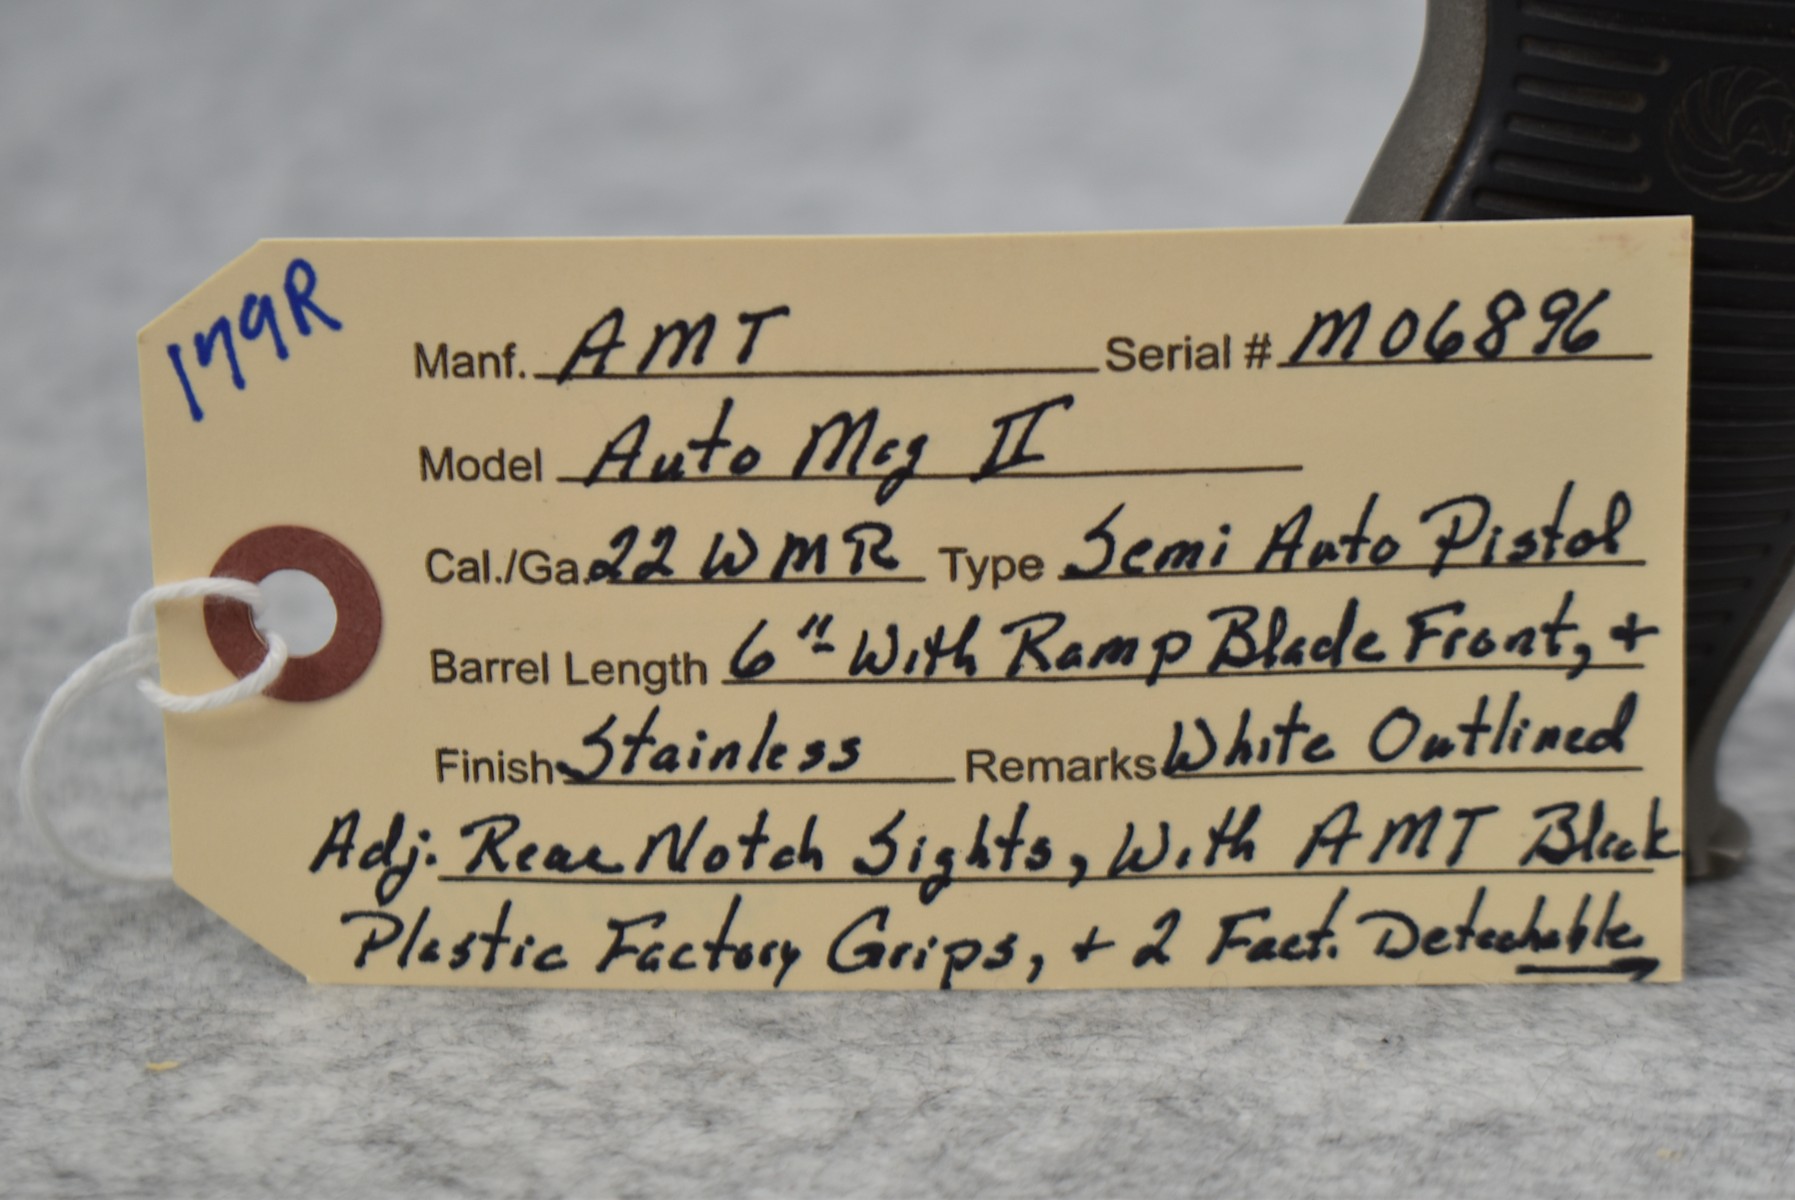 179R
Manf. AMT Serial # M06896
Model Auto Mag II
Cal./Ga. 22 WMR Type Semi Auto Pistol
Barrel Length 6" With Ramp Blade Front, +
Finish Stainless Remarks White Outlined
Adj. Rear Notch Sights, With AMT Black
Plastic Factory Grips, + 2 Fact. Detachable